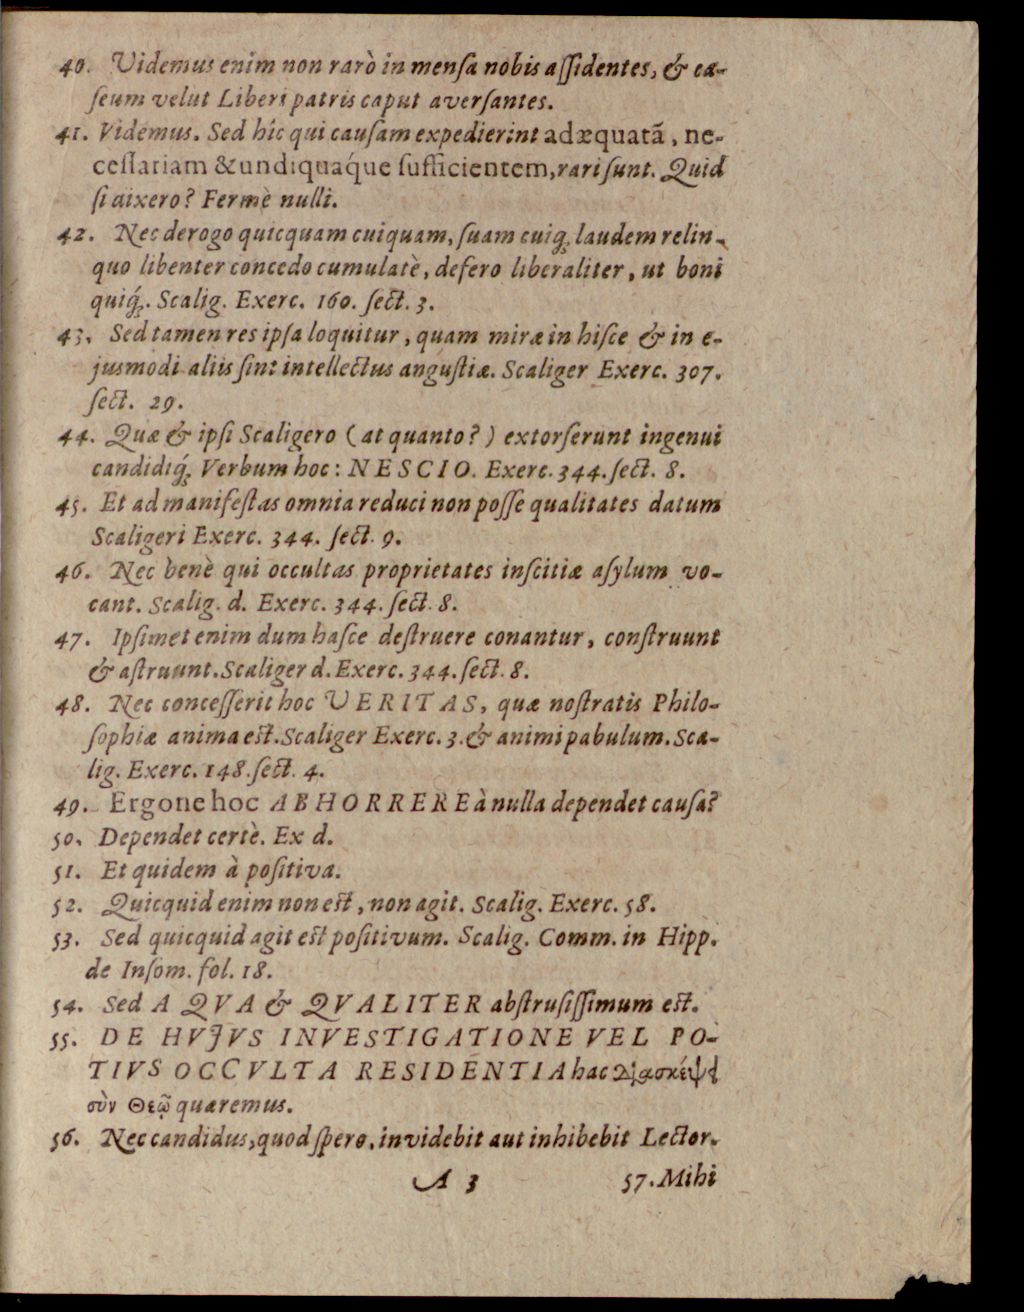 40. Videmus enim non rarò in menſa nobis aſſidentes, & ca-
ſeum velut Liberi patris caput averſantes.
41. Videmus. Sed hîc qui cauſam expedierint adæquatã, ne-
ceſſariam & undiquaq́ue ſufficientem, rari ſunt. Quid
ſi dixero? Fermè nulli.
42. Nec derogo quicquam cuiquam, ſuam cuiq; laudem relin-
quo libenter concedo cumulatè, defero liberaliter, ut boni
quiq́;. Scalig. Exerc. 160. ſect. 3.
43. Sed tamen res ipſa loquitur, quam miræ in hiſce & in e-
jusmodi aliis ſint intellectus anguſtiæ. Scaliger Exerc. 307.
ſect. 29.
44. Quæ & ipſi Scaligero (at quanto?) extorſerunt ingenui
candidiq́; Verbum hoc: NESCIO. Exerc. 344. ſect. 8.
45. Et ad manifeſtas omnia reduci non poſſe qualitates datum
Scaligeri Exerc. 344. ſect. 9.
46. Nec bènè qui occultas proprietates inſcitiæ aſylum vo-
cant. Scalig. d. Exerc. 344. ſect. 8.
47. Ipſimet enim dum haſce deſtruere conantur, conſtruunt
& aſtruunt. Scaliger d. Exerc. 344. ſect. 8.
48. Nec conceſſerit hoc VERITAS, quæ noſtratis Philo-
ſophiæ anima eſt. Scaliger Exerc. 3. & animi pabulum. Sca-
lig. Exerc. 148. ſect. 4.
49. Ergone hoc ABHORRERE à nulla dependet cauſa?
50. Dependet certè. Ex d.
51. Et quidem à poſitiva.
52. Quicquid enim non eſt, non agit. Scalig. Exerc. 58.
53. Sed quicquid agit eſt poſitivum. Scalig. Comm. in Hipp.
de Inſom. fol. 18.
54. Sed A QVA & QVALITER abſtruſiſſimum eſt.
55. DE HVJVS INVESTIGATIONE VEL PO-
TIVS OCCVLTA RESIDENTIA hac διασκέψι
σὺν Θεῷ quæremus.
56. Nec candidus, quod ſpero, invidebit aut inhibebit Lector.
A 3 57. Mihi